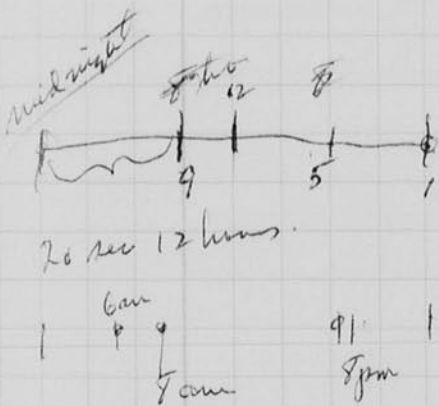 midnight
12
9 5 1
20 sec 12 hours.
6am
8am 8pm